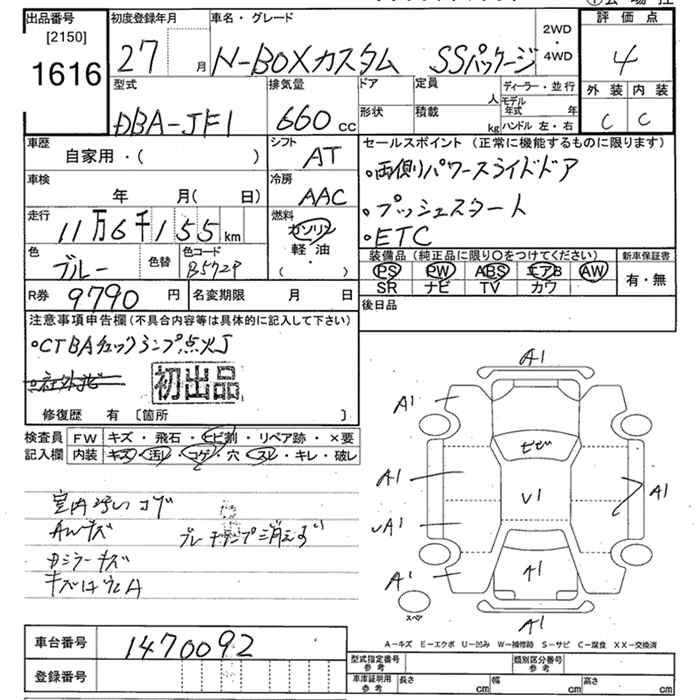 出品番号 初度登録年月 車名・グレード 評価点
[2150] 1616 27 月 N-BOXカスタム SSパッケージ 2WD・4WD 4
型式 排気量 ドア 定員 人 ディーラー・並行 外装 内装
DBA-JF1 660 cc 形状 積載 kg モデル年式 年 ハンドル 左・右 C C
車歴 自家用・( ) シフト AT セールスポイント(正常に機能するものに限ります)
車検 年 月( 日) 冷房 AAC 。両側パワースライドドア
走行 11万6千155km 燃料 ガソリン 。プッシュスタート
軽油・( ) 。ETC
色 ブルー 色替 色コード B572P 装備品(純正品に限り○をつけてください) 新車保証書
PS PW ABS エアB AW 有・無
SR ナビ TV カワ
R券 9790円 名変期限 月 日 後日品
注意事項申告欄(不具合内容等は具体的に記入して下さい)
。CTBAチェックランプ点火J
初出品
修復歴 有 〔箇所 〕
検査員 FW キズ・飛石・ヒビ割・リペア跡・×要
記入欄 内装 キズ・汚レ・コゲ・穴・スレ・キレ・破レ
室内汚レ コゲ
AWキズ ブレーキランプ消えず
A1
A1
ヒビ
A1 V1 A1
A1
A1 A1
スペア
A1
A―キズ E―エクボ U―凹み W―補修跡 S―サビ C―腐食 XX―交換済
車台番号 1470092 型式指定番号 参考 類別区分番号 参考
登録番号 車庫証明用 参考 長さ cm 幅 cm 高さ cm